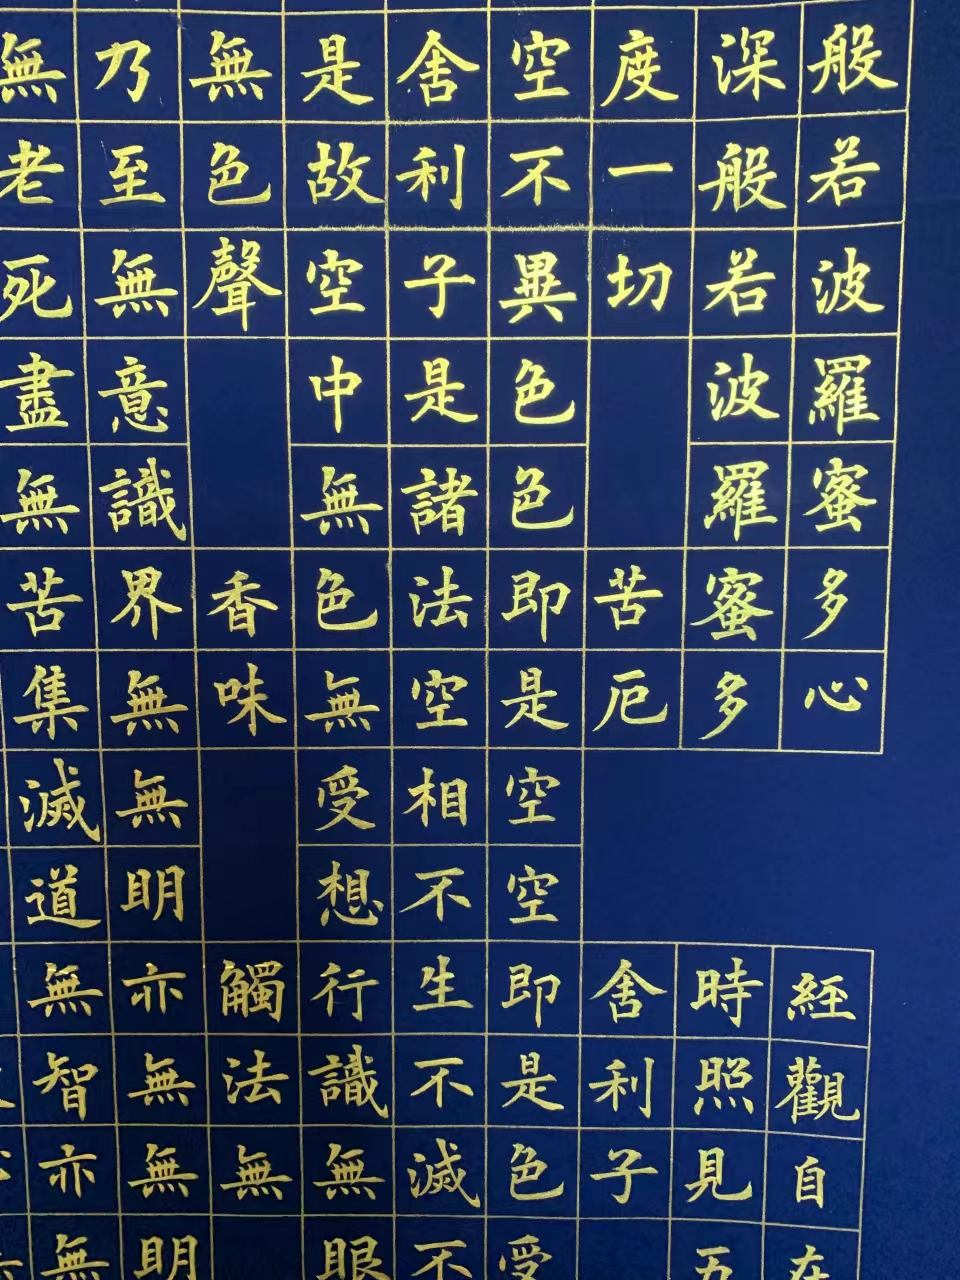 般若波羅蜜多心經觀自在
深般若波羅蜜多時照見五
度一切苦厄舍利子
空不異色色即是空空即是色受
舍利子是諸法空相不生不滅不
是故空中無色無受想行識無眼
無色聲香味觸法無
乃至無意識界無無明亦無無明
無老死盡無苦集滅道無智亦無